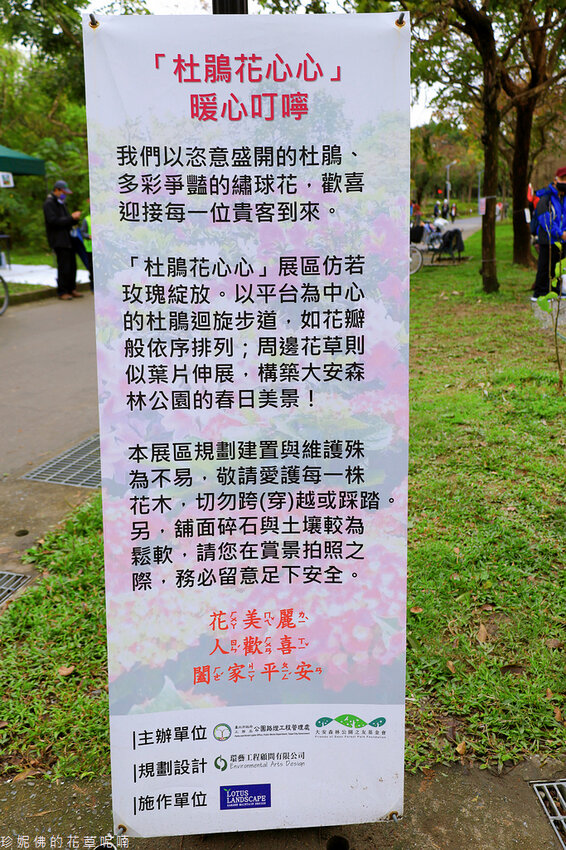 「杜鵑花心心」
暖心叮嚀
我們以恣意盛開的杜鵑、
多彩爭豔的繡球花，歡喜
迎接每一位貴客到來。
「杜鵑花心心」展區仿若
玫瑰綻放。以平台為中心
的杜鵑迴旋步道，如花瓣
般依序排列；周邊花草則
似葉片伸展，構築大安森
林公園的春日美景！
本展區規劃建置與維護殊
為不易，敬請愛護每一株
花木，切勿跨(穿)越或踩踏。
另，舖面碎石與土壤較為
鬆軟，請您在賞景拍照之
際，務必留意足下安全。
花ㄏㄨㄚ美ㄇㄟˇ麗ㄌㄧˋ
人ㄖㄣˊ歡ㄏㄨㄢ喜ㄒㄧˇ
闔ㄏㄜˊ家ㄐㄧㄚ平ㄆㄧㄥˊ安ㄢ
主辦單位 公園路燈工程管理處 大安森林公園之友基金會
規劃設計 環藝工程顧問有限公司
Environmental Arts Design
施作單位 LOTUS
LANDSCAPE
珍妮佛的花草呢喃